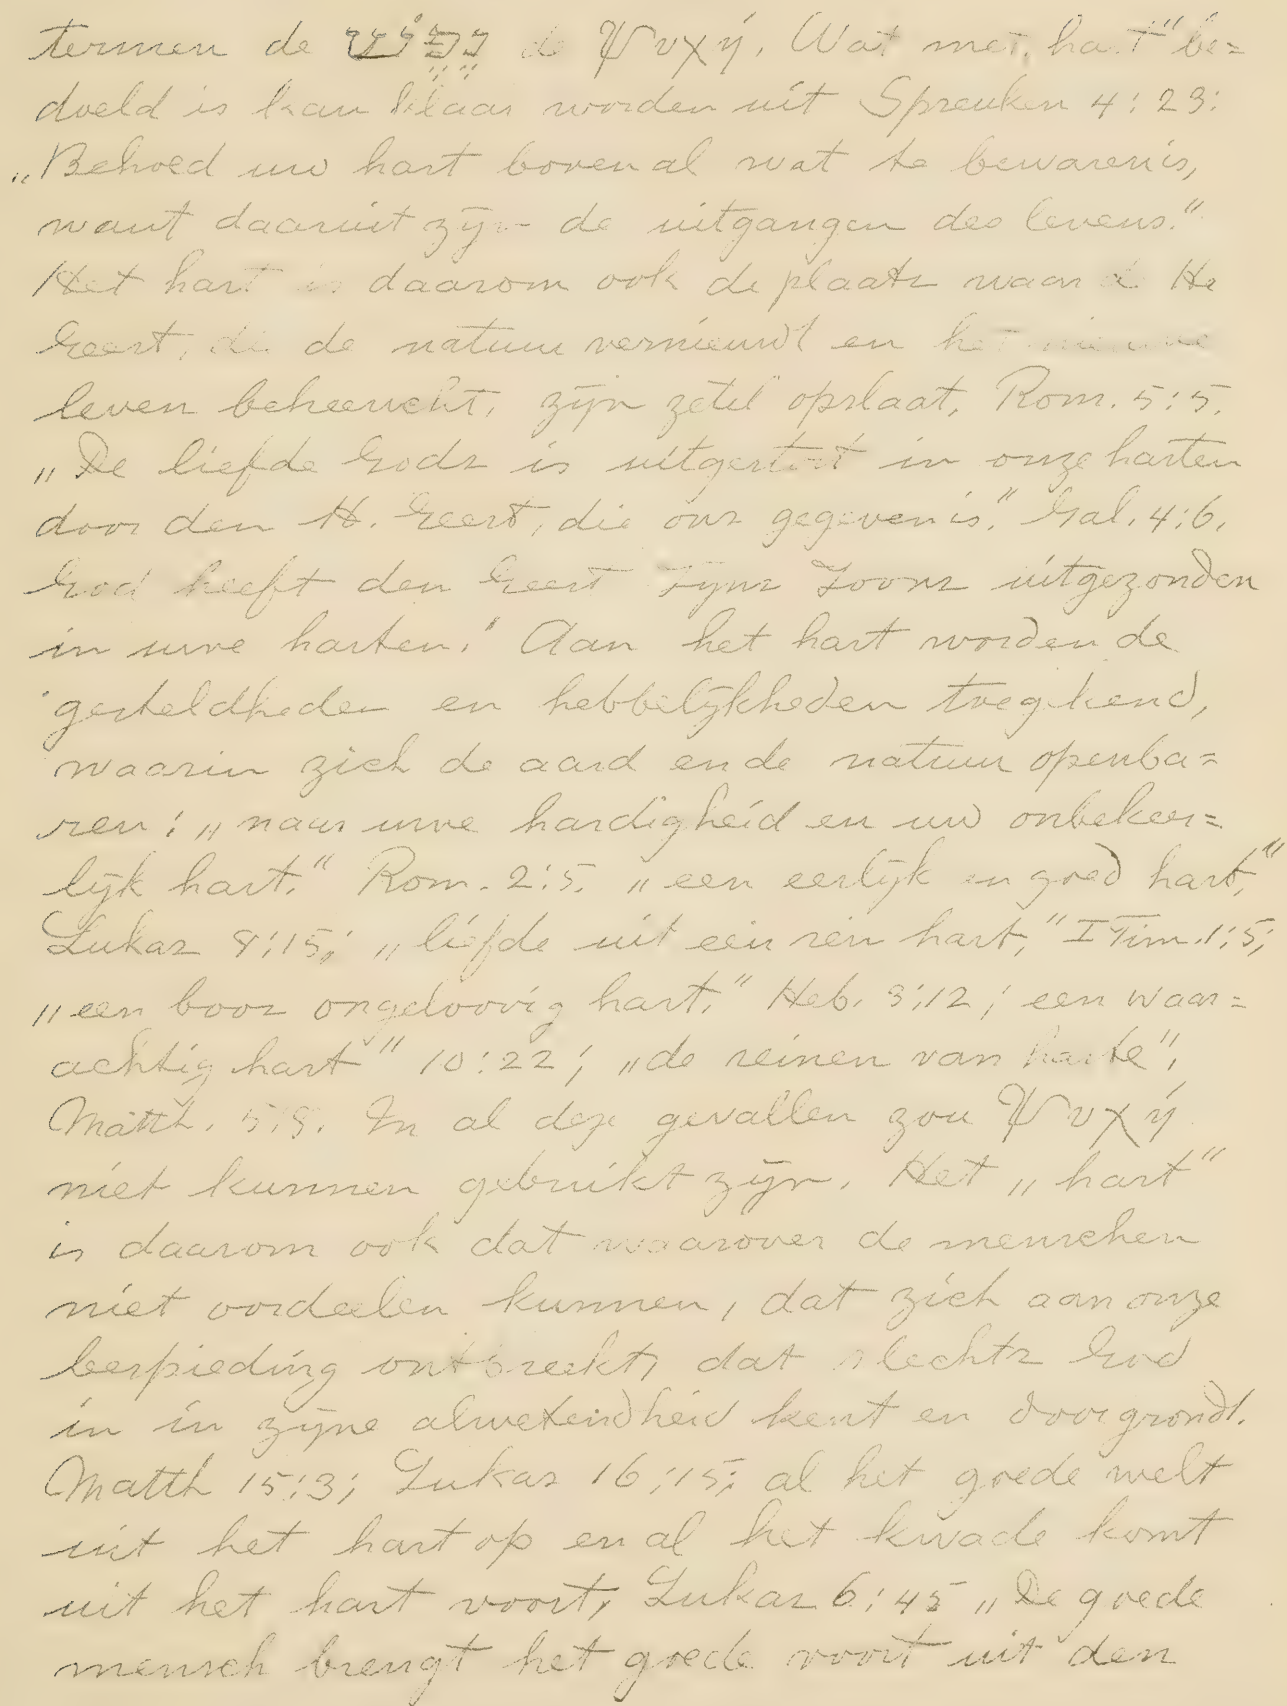 termen de נֶפֶשׁ de ψυχή. Wat met „hart" be=
doeld is kan klaar worden uit Spreuken 4:23:
„Behoed uw hart boven al wat te bewaren is,
want daaruit zijn de uitgangen des levens."
Het hart is daarom ook de plaats waar de He
Geest, die de natuur vernieuwt en het nieuwe
leven beheerscht, zijn zetel opslaat, Rom. 5:5.
„De liefde Gods is uitgestort in onze harten
door den H. Geest, die ons gegeven is." Gal. 4:6.
God heeft den Geest zijns Zoons uitgezonden
in uwe harten." Aan het hart worden de
gesteldheden en hebbelijkheden toegekend,
waarin zich de aard en de natuur openba=
ren: „naar uwe hardigheid en uw onbekeer=
lijk hart." Rom. 2:5. „een eerlijk en goed hart,"
Lukas 8:15; „liefde uit een rein hart," I Tim. 1:5;
„een boos ongeloovig hart." Heb. 3:12; een waar=
achtig hart" 10:22; „de reinen van harte",
Matth. 5:8. In al deze gevallen zou ψυχή
niet kunnen gebruikt zijn. Het „hart"
is daarom ook dat waarover de menschen
niet oordeelen kunnen, dat zich aan onze
bespieding ontrekt, dat slechts God
in in zijne alwetendheid kent en doorgrondt.
Matth 15:3; Lukas 16:15; al het goede welt
uit het hart op en al het kwade komt
uit het hart voort, Lukas 6:45 „De goede
mensch brengt het goede voort uit den